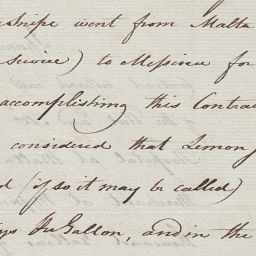 Snipe went from Malta
service) to Messina for
accomplishing this Contra
considered that Lemon
d (if so it may be called)
ys Pr Gallon, and in the